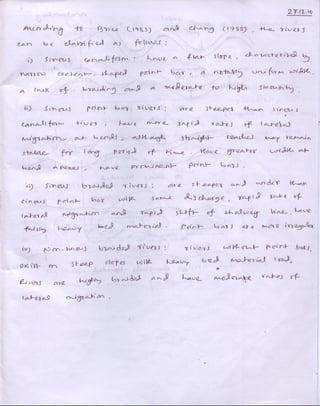 27.12.10
According to Brice (1983) and Chang (1988), the rivers
can be classified as follows:
i) Sinous canaliform: have a flat slope, characterized by
narrow crescent-shaped point bar, a notably uniform width,
a lack of braiding and a moderate to high sinousity
ii) Sinous point bar rivers: are steeper than sinous
canaliform river, have more rapid rates of lateral
migration at bends, although straight reaches may remain
stable for long period of time. Have greater width at
bend apexes, have prominent point bars.
iii) Sinous braided rivers: are steeper and wider than
sinous point bar with same discharge, rapid rate of
lateral migration and rapid shift of thalweg line, have
fairly heavy bed material. Point bars are more irregular
iv) Non-sinous braided rivers: rivers without point bars,
exist on steep slopes with heavy bed material load,
Rivers are highly braided and have moderate rates of
lateral migration.